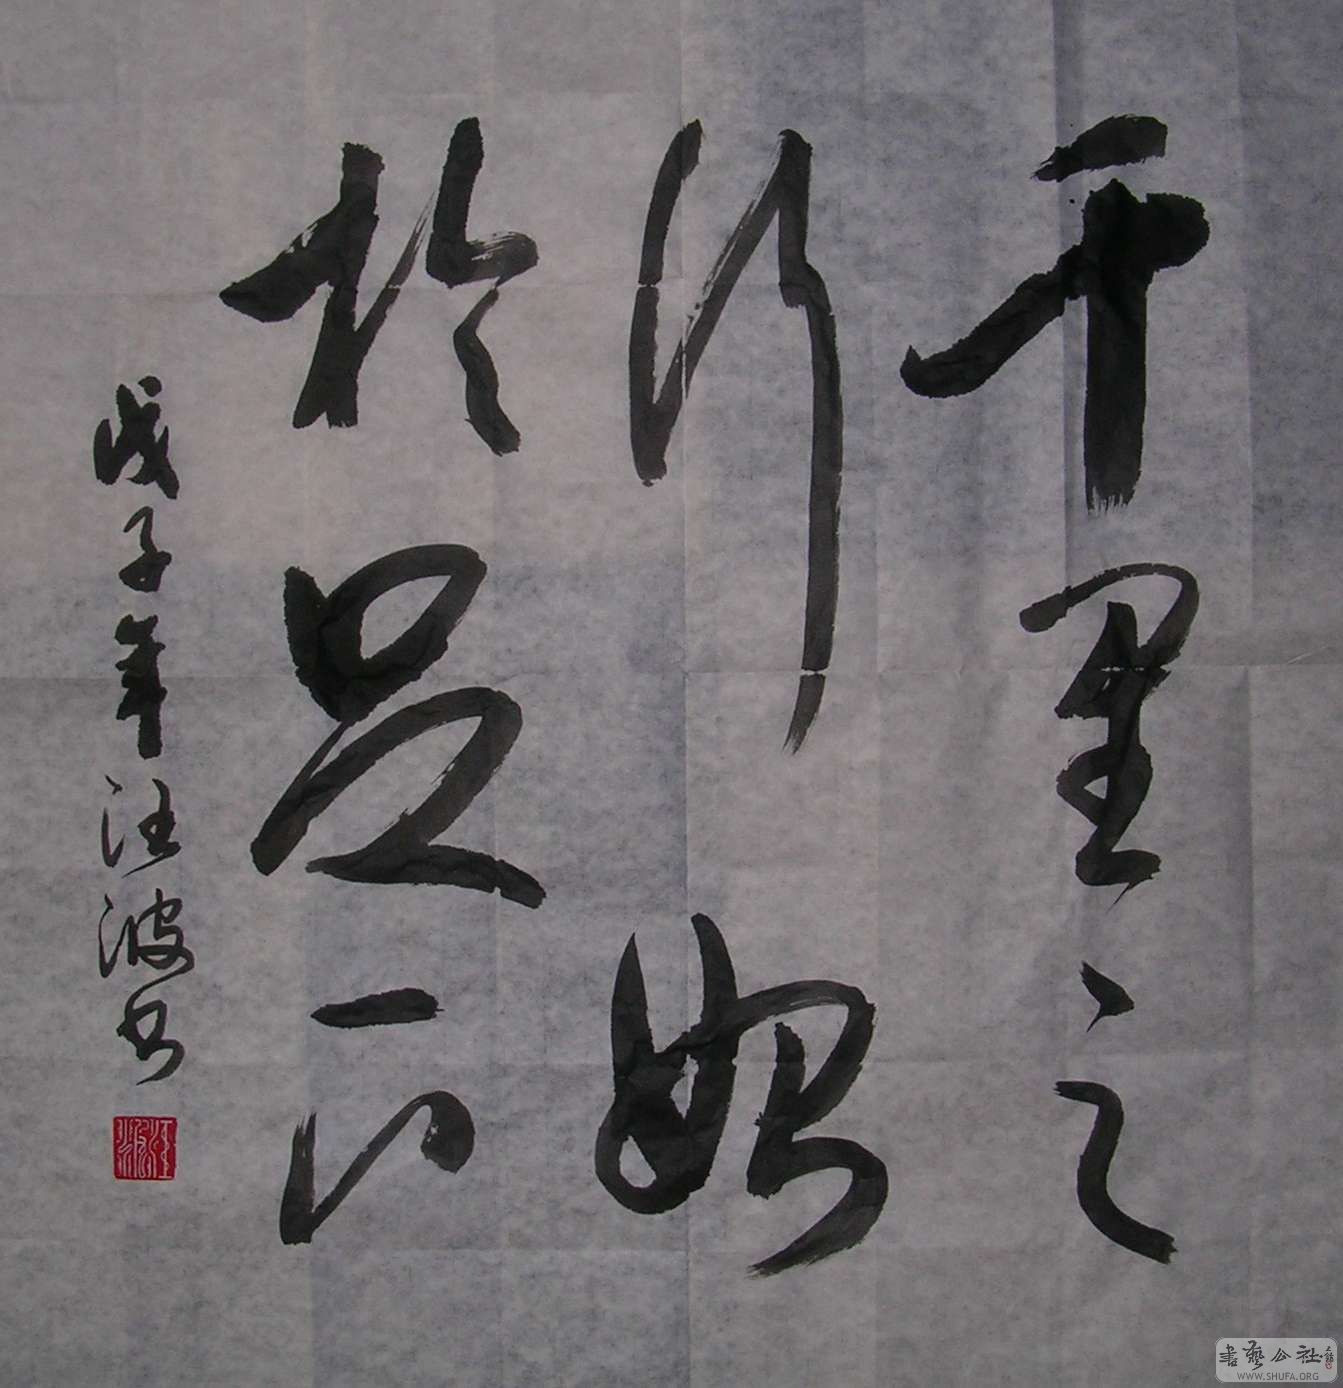 千里之
行始
於足下
戊子年汪波书
汪波
書藝公社
WWW.SHUFA.ORG